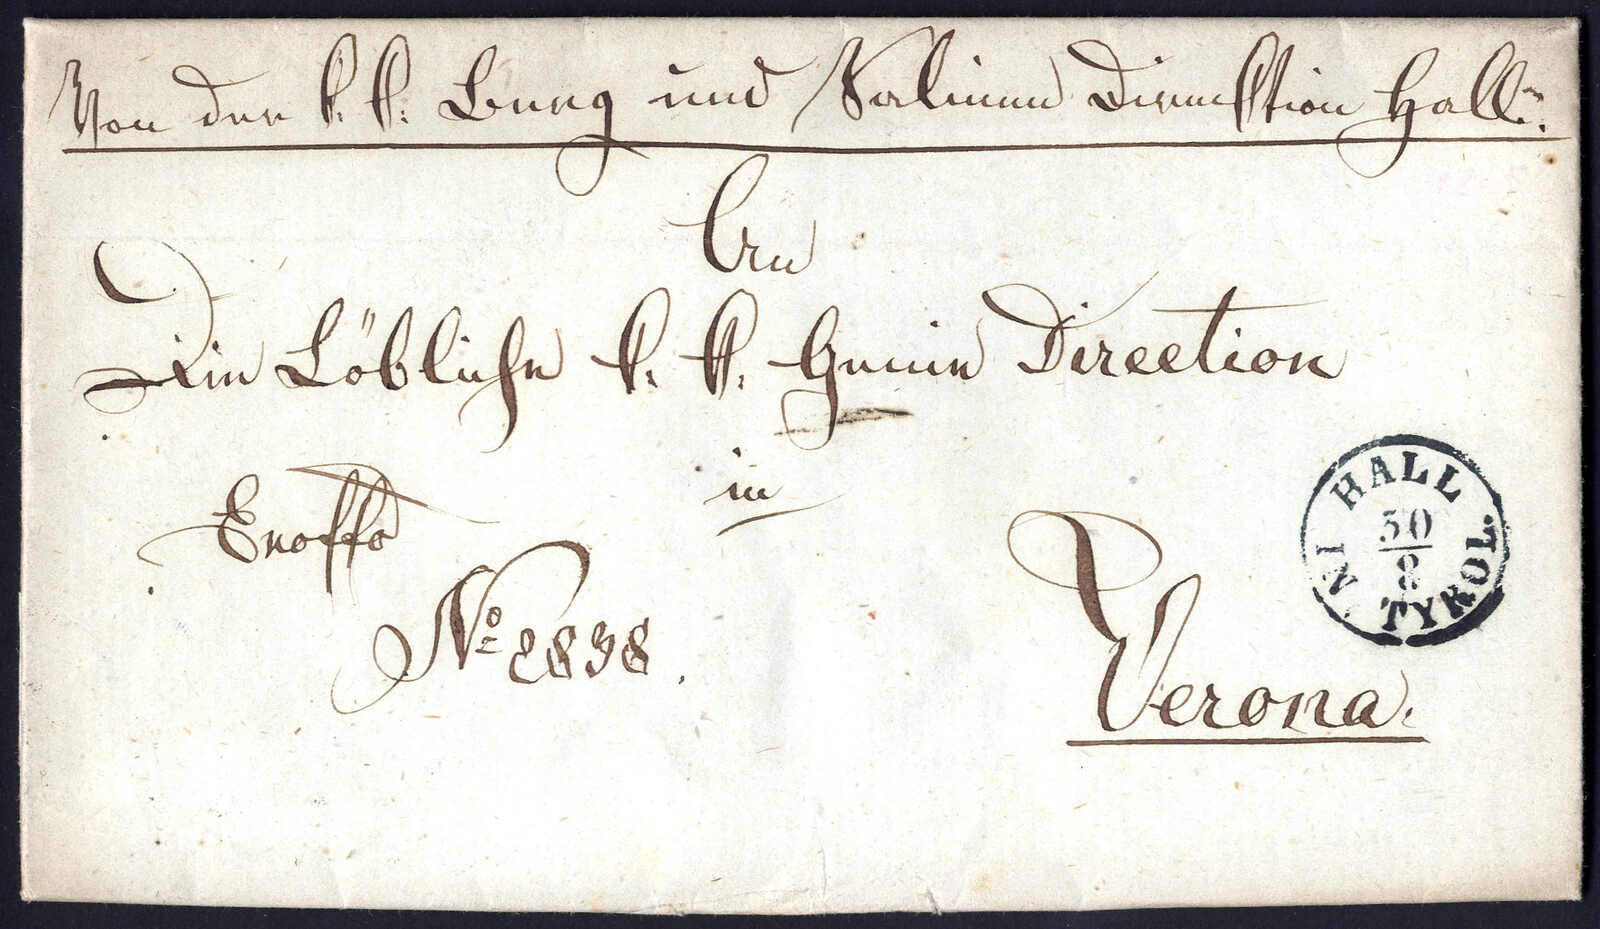 Von der k. k. Berg und Salinen Direction Hall.
An
Die Löbliche k. k. Genie Direction
in
Verona.
Ex offo
No 2838.
HALL
30/8
IN TYROL.